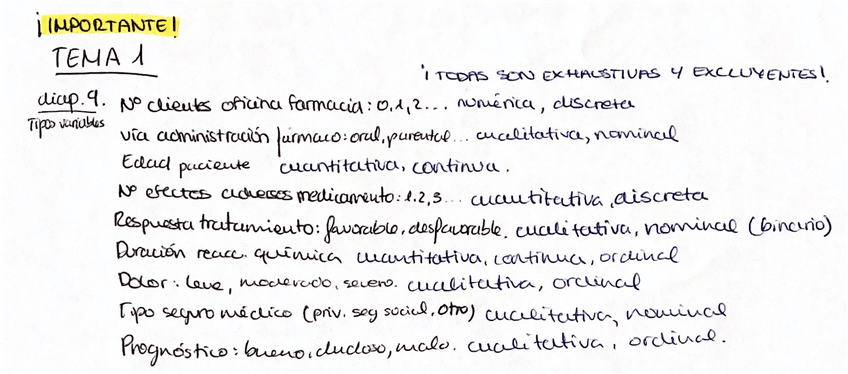 ¡IMPORTANTE!
TEMA 1
¡TODAS SON EXHAUSTIVAS Y EXCLUYENTES!
diap. 9. Nº clientes oficina farmacia: 0,1,2... numérica, discreta
Tipos variables
vía administración fármaco: oral, parental... cualitativa, nominal
Edad paciente cuantitativa, continua.
Nº efectos adversos medicamento: 1,2,3... cuantitativa, discreta
Respuesta tratamiento: favorable, desfavorable. cualitativa, nominal (binario)
Duración reacc. química cuantitativa, continua, ordinal
Dolor: leve, moderado, severo. cualitativa, ordinal
Tipo seguro médico (priv. seg social, otro) cualitativa, nominal
Prognóstico: bueno, dudoso, malo. cualitativa, ordinal.